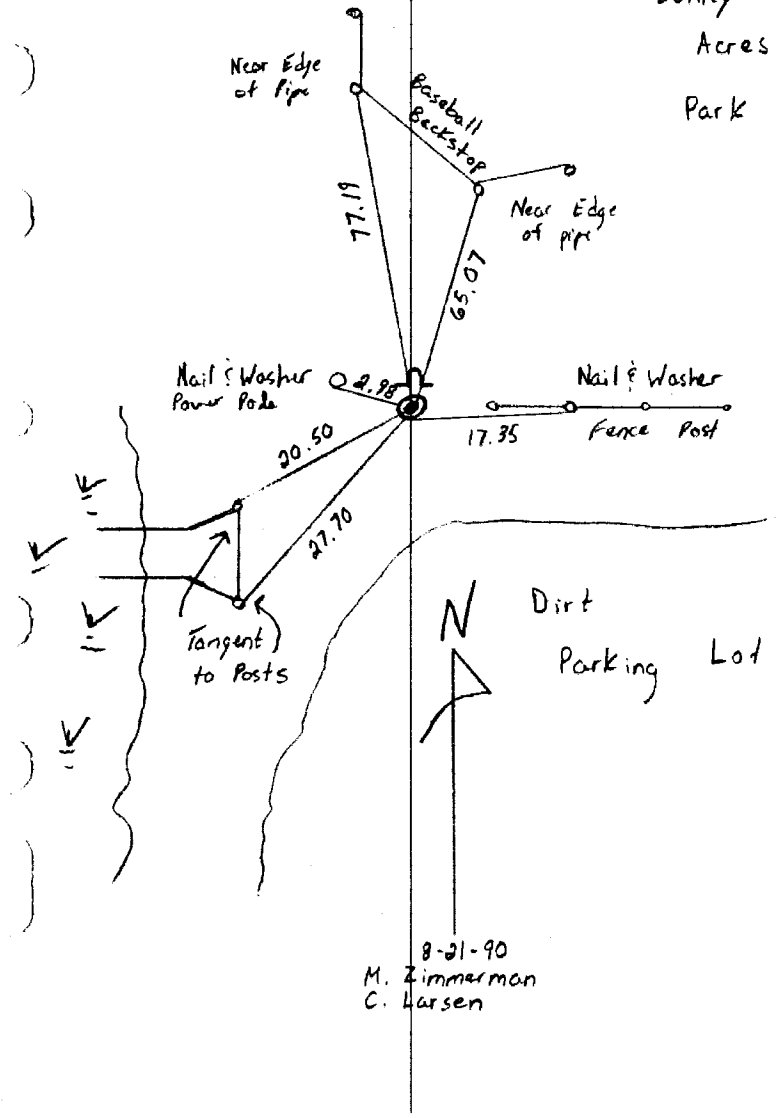 Acres
Park
Near Edge
of Pipe
Baseball
Backstop
77.19
Near Edge
of pipe
65.07
Nail & Washer
Power Pole
2.98
Nail & Washer
17.35
Fence Post
20.50
27.70
Tangent
to Posts
N
Dirt
Parking Lot
8-21-90
M. Zimmerman
C. Larsen